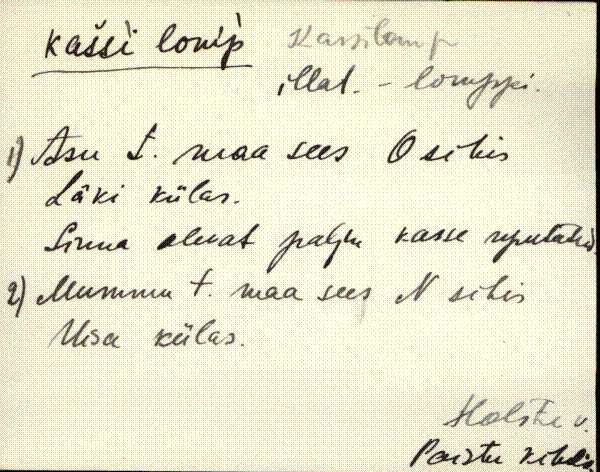 kašši lomp̀ Kassilomp
illat. - lomppi.
1) Asu t. maa sees O sihis
Läki külas.
Sinna olevat palju kasse uputatud.
2) Mummu t. maa sees N sihis
Uisa külas.
Holstre v.
Paistu kihelk.